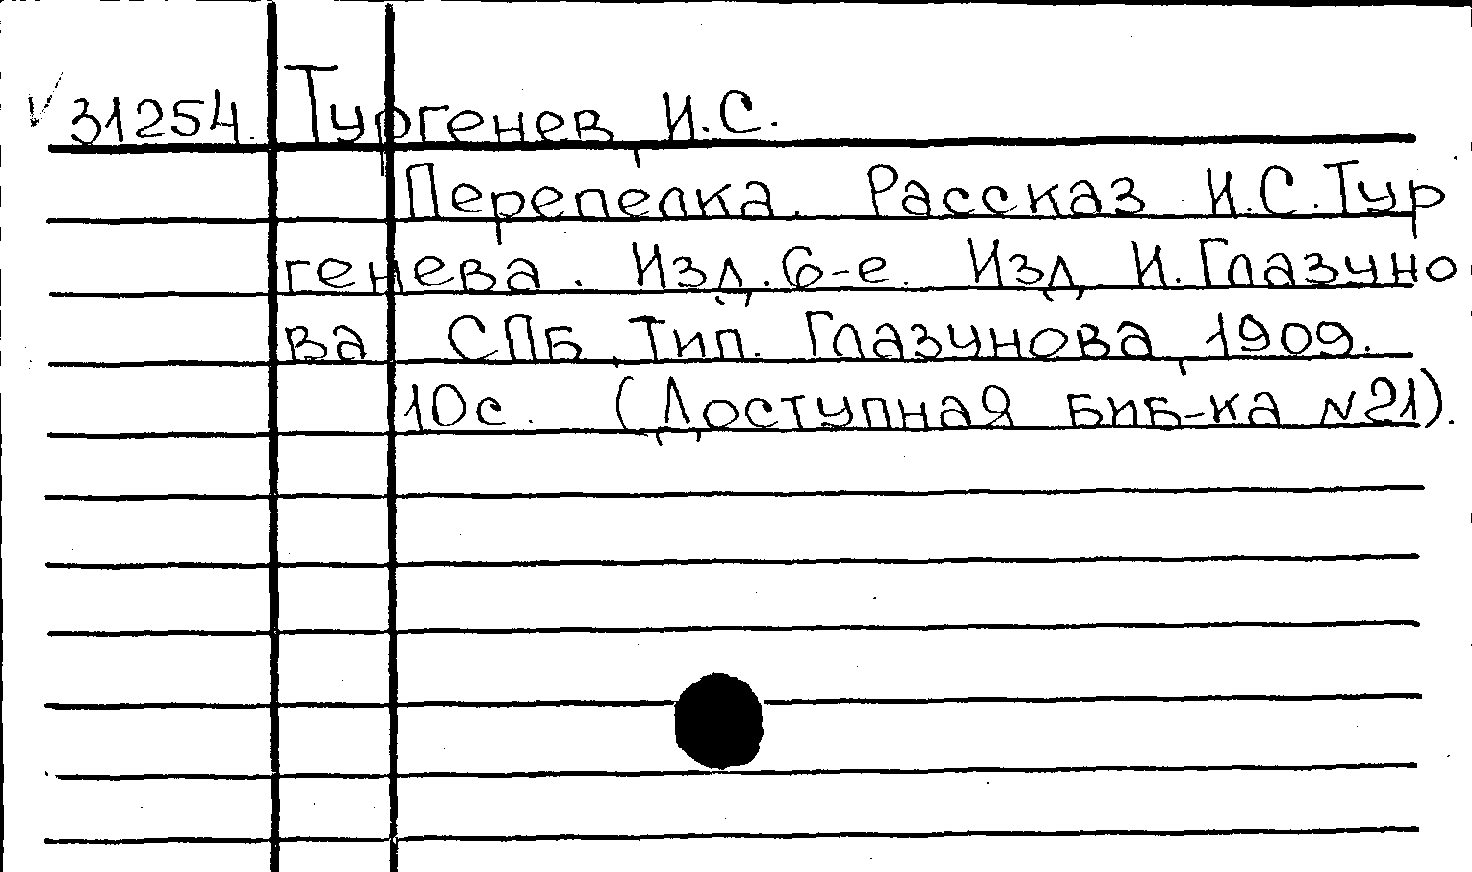 √ 31254. Тургенев И.С.
Перепелка. Рассказ И.С.Тур
генева. Изд. 6-е. Изд. И.Глазуно
ва, СПБ, Тип. Глазунова, 1909.
10с. (Доступная биб-ка №21).